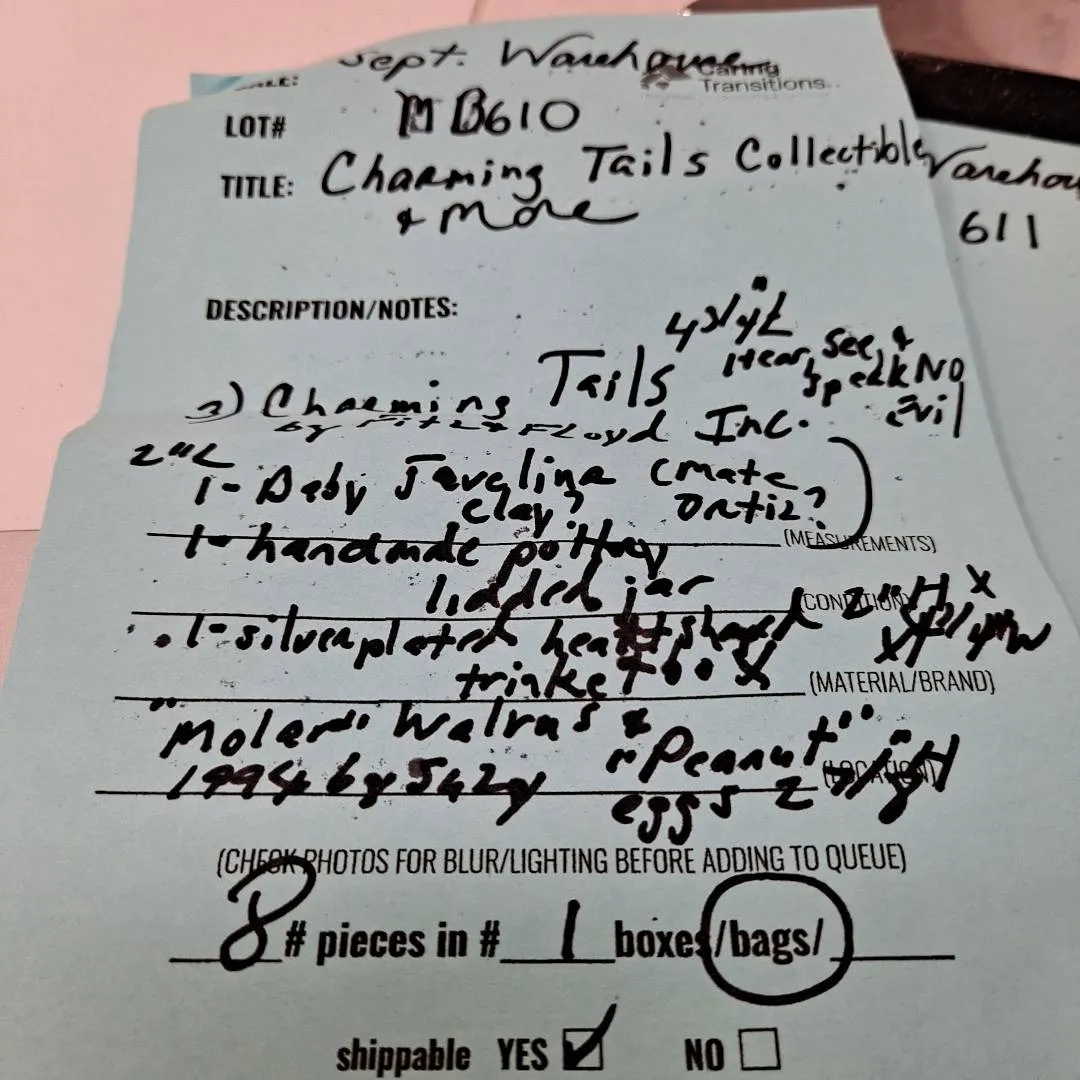 Sept. Warehouse
Caring
Transitions
LOT# MB610
TITLE: Charming Tails Collectible
& More
Warehou
611
DESCRIPTION/NOTES:
Hear, See, &
Speak No
Evil
3) Charming Tails
by Fitz & Floyd Inc.
2"L
1- Baby Javelina (Mate
clay? Ortiz?)
(MEASUREMENTS)
1- handmade pottery
lidded jar
(CONDITION)
1- silverplated heart shaped 2"H x
trinket box
(MATERIAL/BRAND)
"Molar" Walrus &
"Peanut"
(LOCATION)
1994 by Suzy eggs 2
(CHECK PHOTOS FOR BLUR/LIGHTING BEFORE ADDING TO QUEUE)
8 # pieces in # 1 boxes/bags/
shippable YES NO